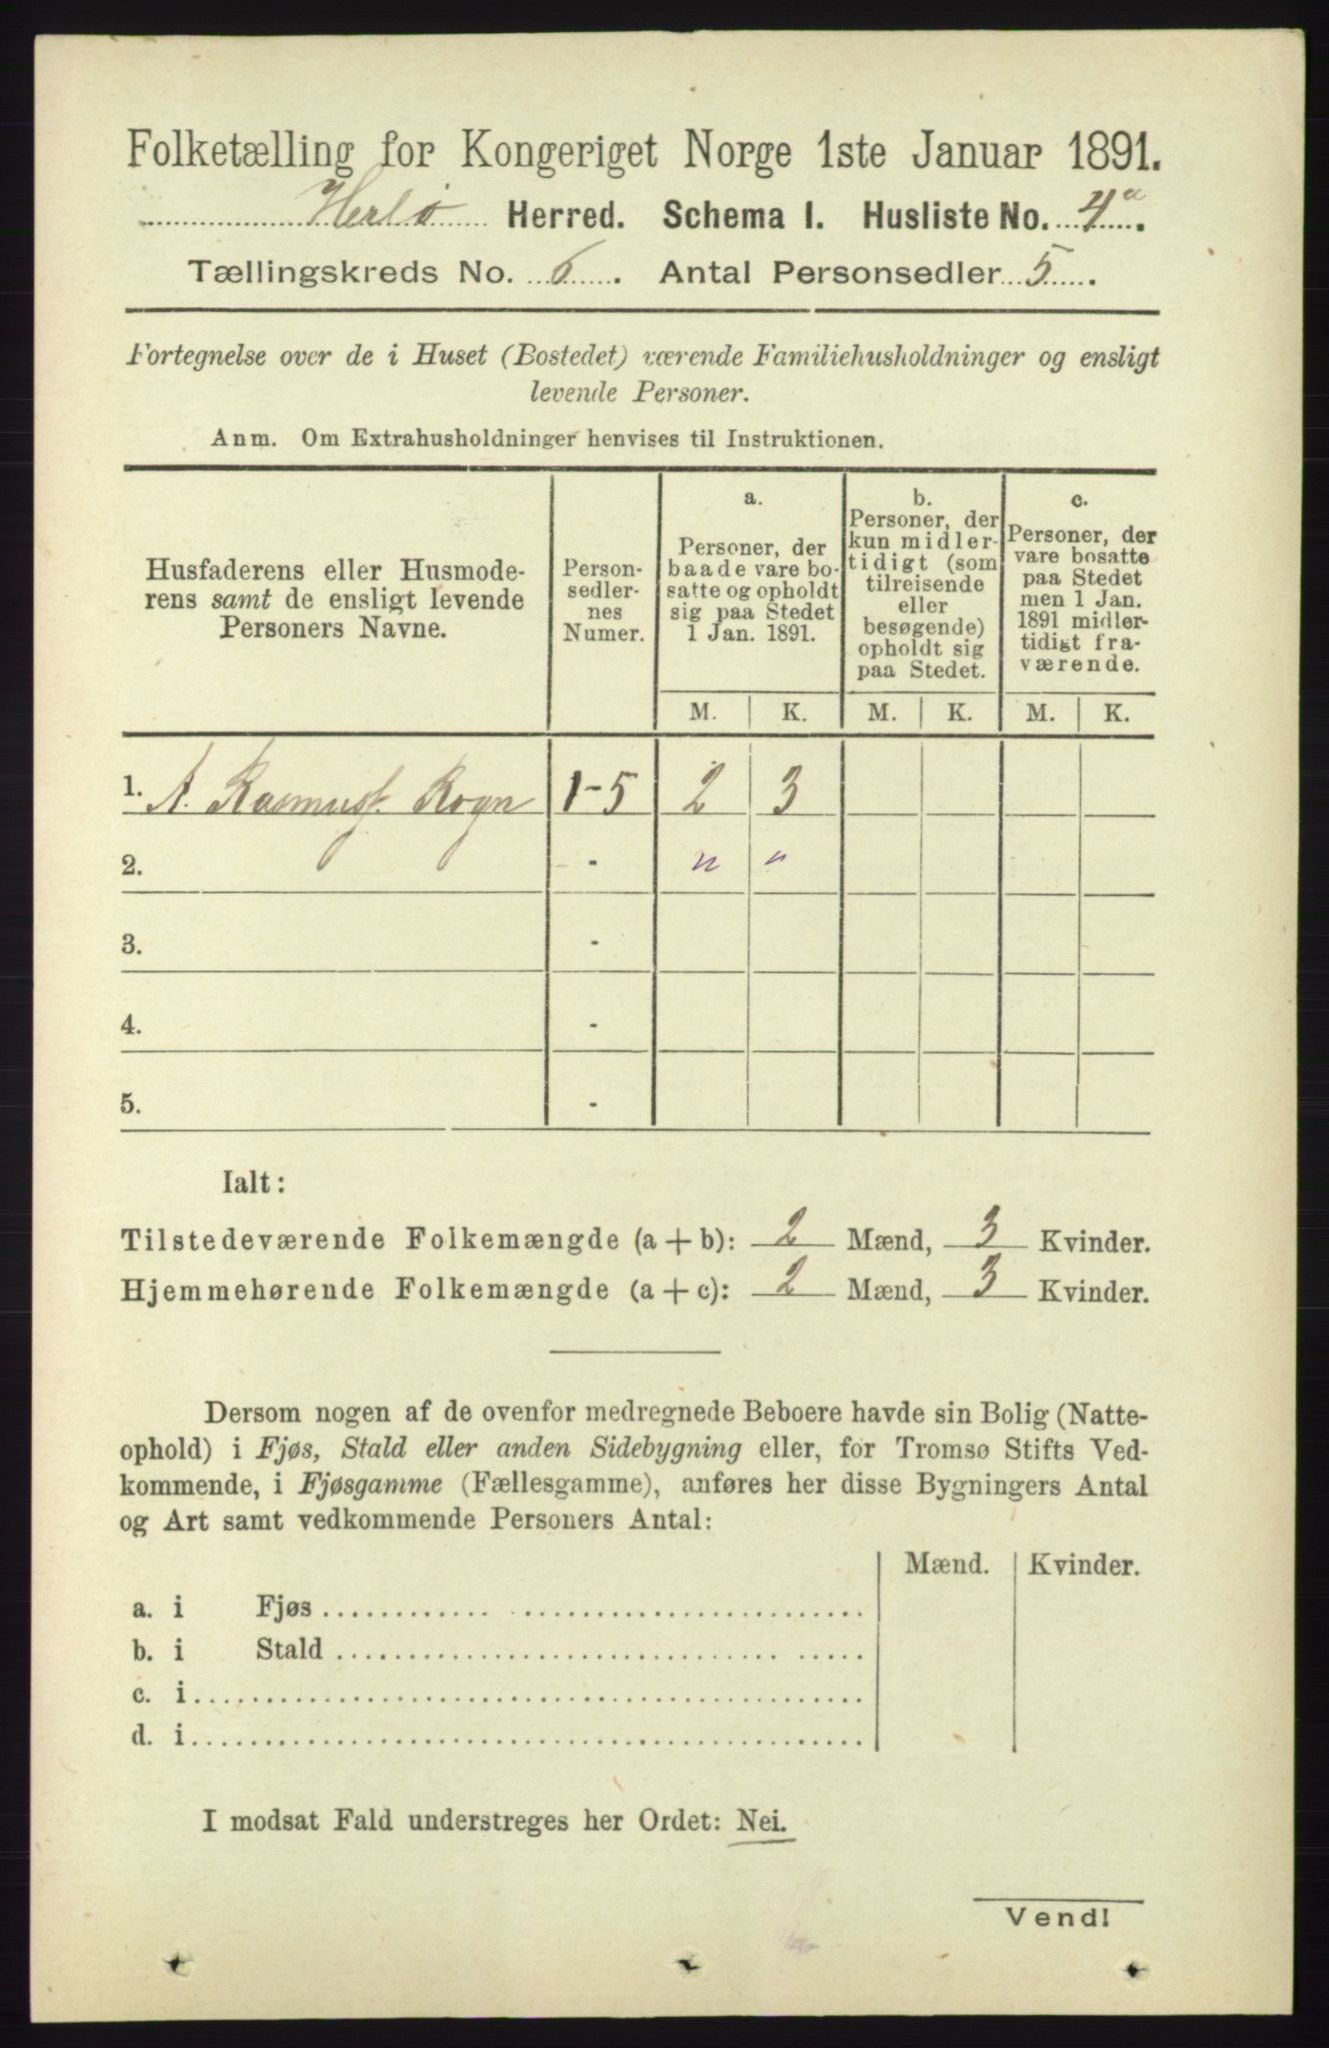 Folketælling for Kongeriget Norge 1ste Januar 1891.
Herlø Herred. Schema I. Husliste No. 4a.
Tællingskreds No. 6. Antal Personsedler 5.
Fortegnelse over de i Huset (Bostedet) værende Familiehusholdninger og ensligt
levende Personer.
Anm. Om Extrahusholdninger henvises til Instruktionen.
Husfaderens eller Husmode-
rens samt de ensligt levende
Personers Navne.
Person-
sedler-
nes
Numer.
a.
Personer, der
baade vare bo-
satte og opholdt
sig paa Stedet
1 Jan. 1891.
b.
Personer, der
kun midler-
tidigt (som
tilreisende
eller
besøgende)
opholdt sig
paa Stedet.
c.
Personer, der
vare bosatte
paa Stedet
men 1 Jan.
1891 midler-
tidigt fra-
værende.
M. K. M. K. M. K.
1. A. Rasmusf. Rogn 1-5 2 3
2. - " "
3. -
4. -
5. -
Ialt:
Tilstedeværende Folkemængde (a+b): 2 Mænd, 3 Kvinder.
Hjemmehørende Folkemængde (a+c): 2 Mænd, 3 Kvinder.
Dersom nogen af de ovenfor medregnede Beboere havde sin Bolig (Natte-
ophold) i Fjøs, Stald eller anden Sidebygning eller, for Tromsø Stifts Ved-
kommende, i Fjøsgamme (Fællesgamme), anføres her disse Bygningers Antal
og Art samt vedkommende Personers Antal:
Mænd. Kvinder.
a. i Fjøs
b. i Stald
c. i
d. i
I modsat Fald understreges her Ordet: Nei.
Vend!